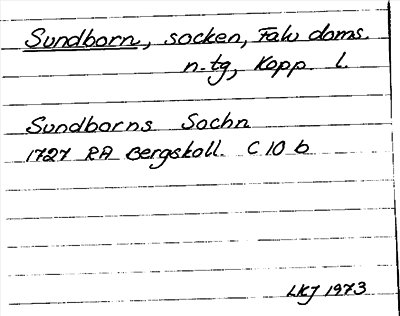 Sundborn, socken, Falu doms.
n-tg, Kopp. l.
Sundborns Sochn
1727 RA Bergskoll. C 10 b
LKJ 1973